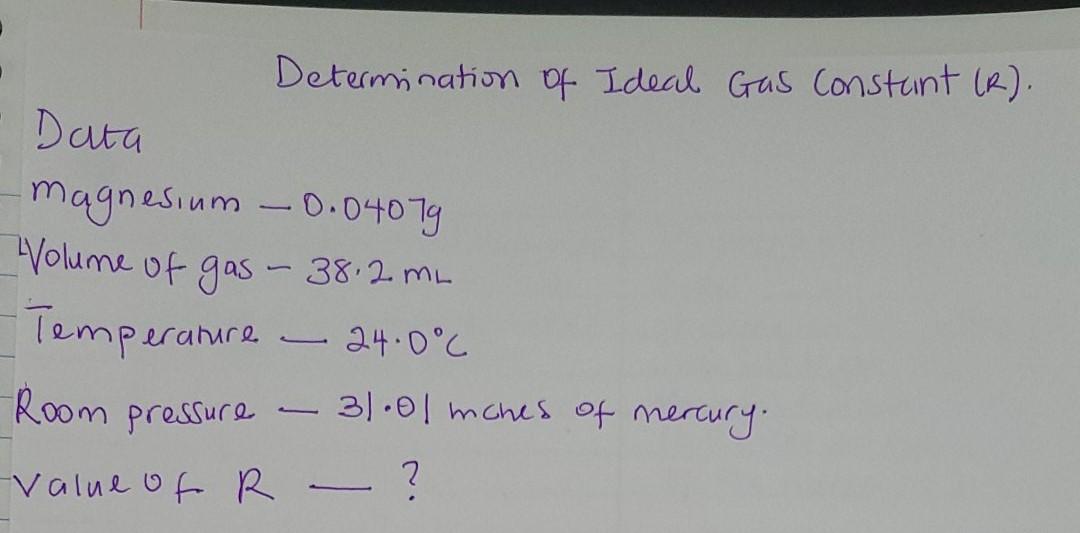 Determination of Ideal Gas Constant (R).
Data
magnesium – 0.0407g
Volume of gas – 38.2 mL
Temperature – 24.0°C
Room pressure – 31.01 inches of mercury.
Value of R – ?